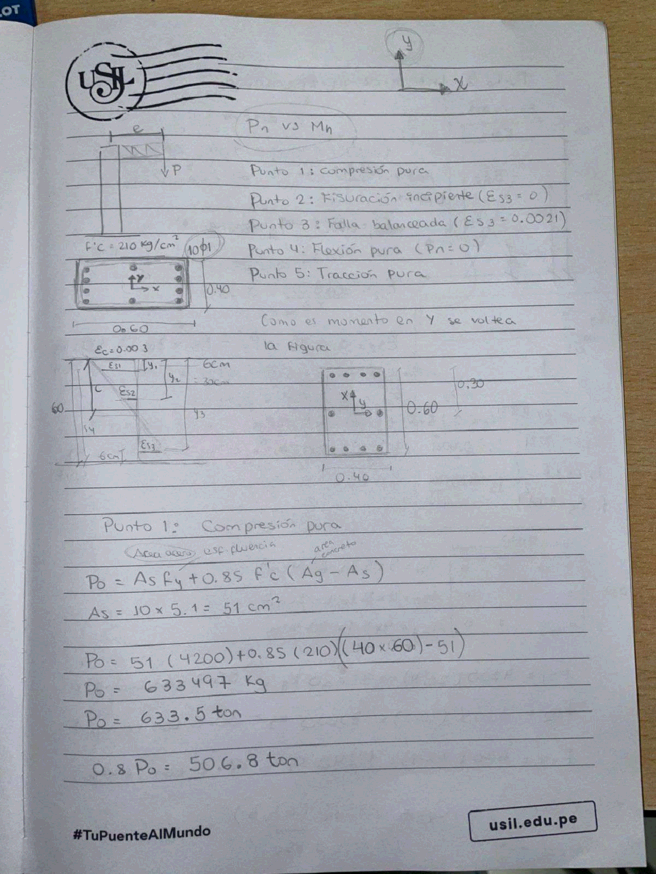 LOT
USIL
y
x
Pn vs Mn
e
P
Punto 1: compresión pura
Punto 2: Fisuración incipiente (Es3 = 0)
Punto 3: Falla balanceada (Es3 = 0.0021)
f'c = 210 kg/cm² 10φ1
Punto 4: Flexión pura (Pn = 0)
Punto 5: Tracción pura
y
x
0.40
0.60
Como el momento en Y se voltea
la figura
Ec = 0.003
Es1
y1
6cm
c
Es2
y2
60
y3
Es3
6cm
x
y
0.30
0.60
0.40
Punto 1: Compresión pura
Area acero esf. fluencia area concreto
Po = As fy + 0.85 f'c (Ag - As)
As = 10 x 5.1 = 51 cm²
Po = 51 (4200) + 0.85 (210) ((40 x 60) - 51)
Po = 633497 kg
Po = 633.5 ton
0.8 Po = 506.8 ton
#TuPuenteAlMundo
usil.edu.pe